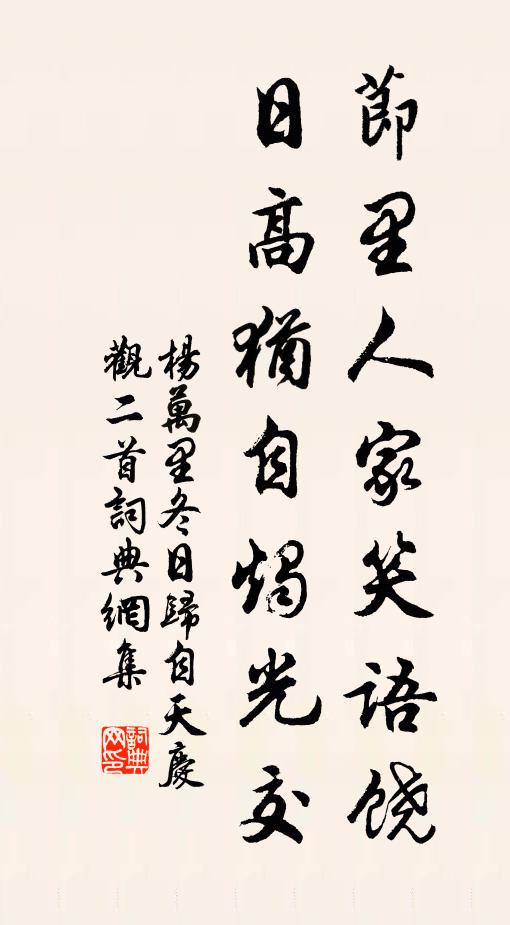 蔀里人家笑语饶
日高猶自燭光交
楊萬里冬日歸自天慶
觀二首詞典網集
詞典
网印